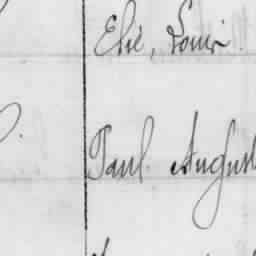 Elie, Louis.
Paul. August